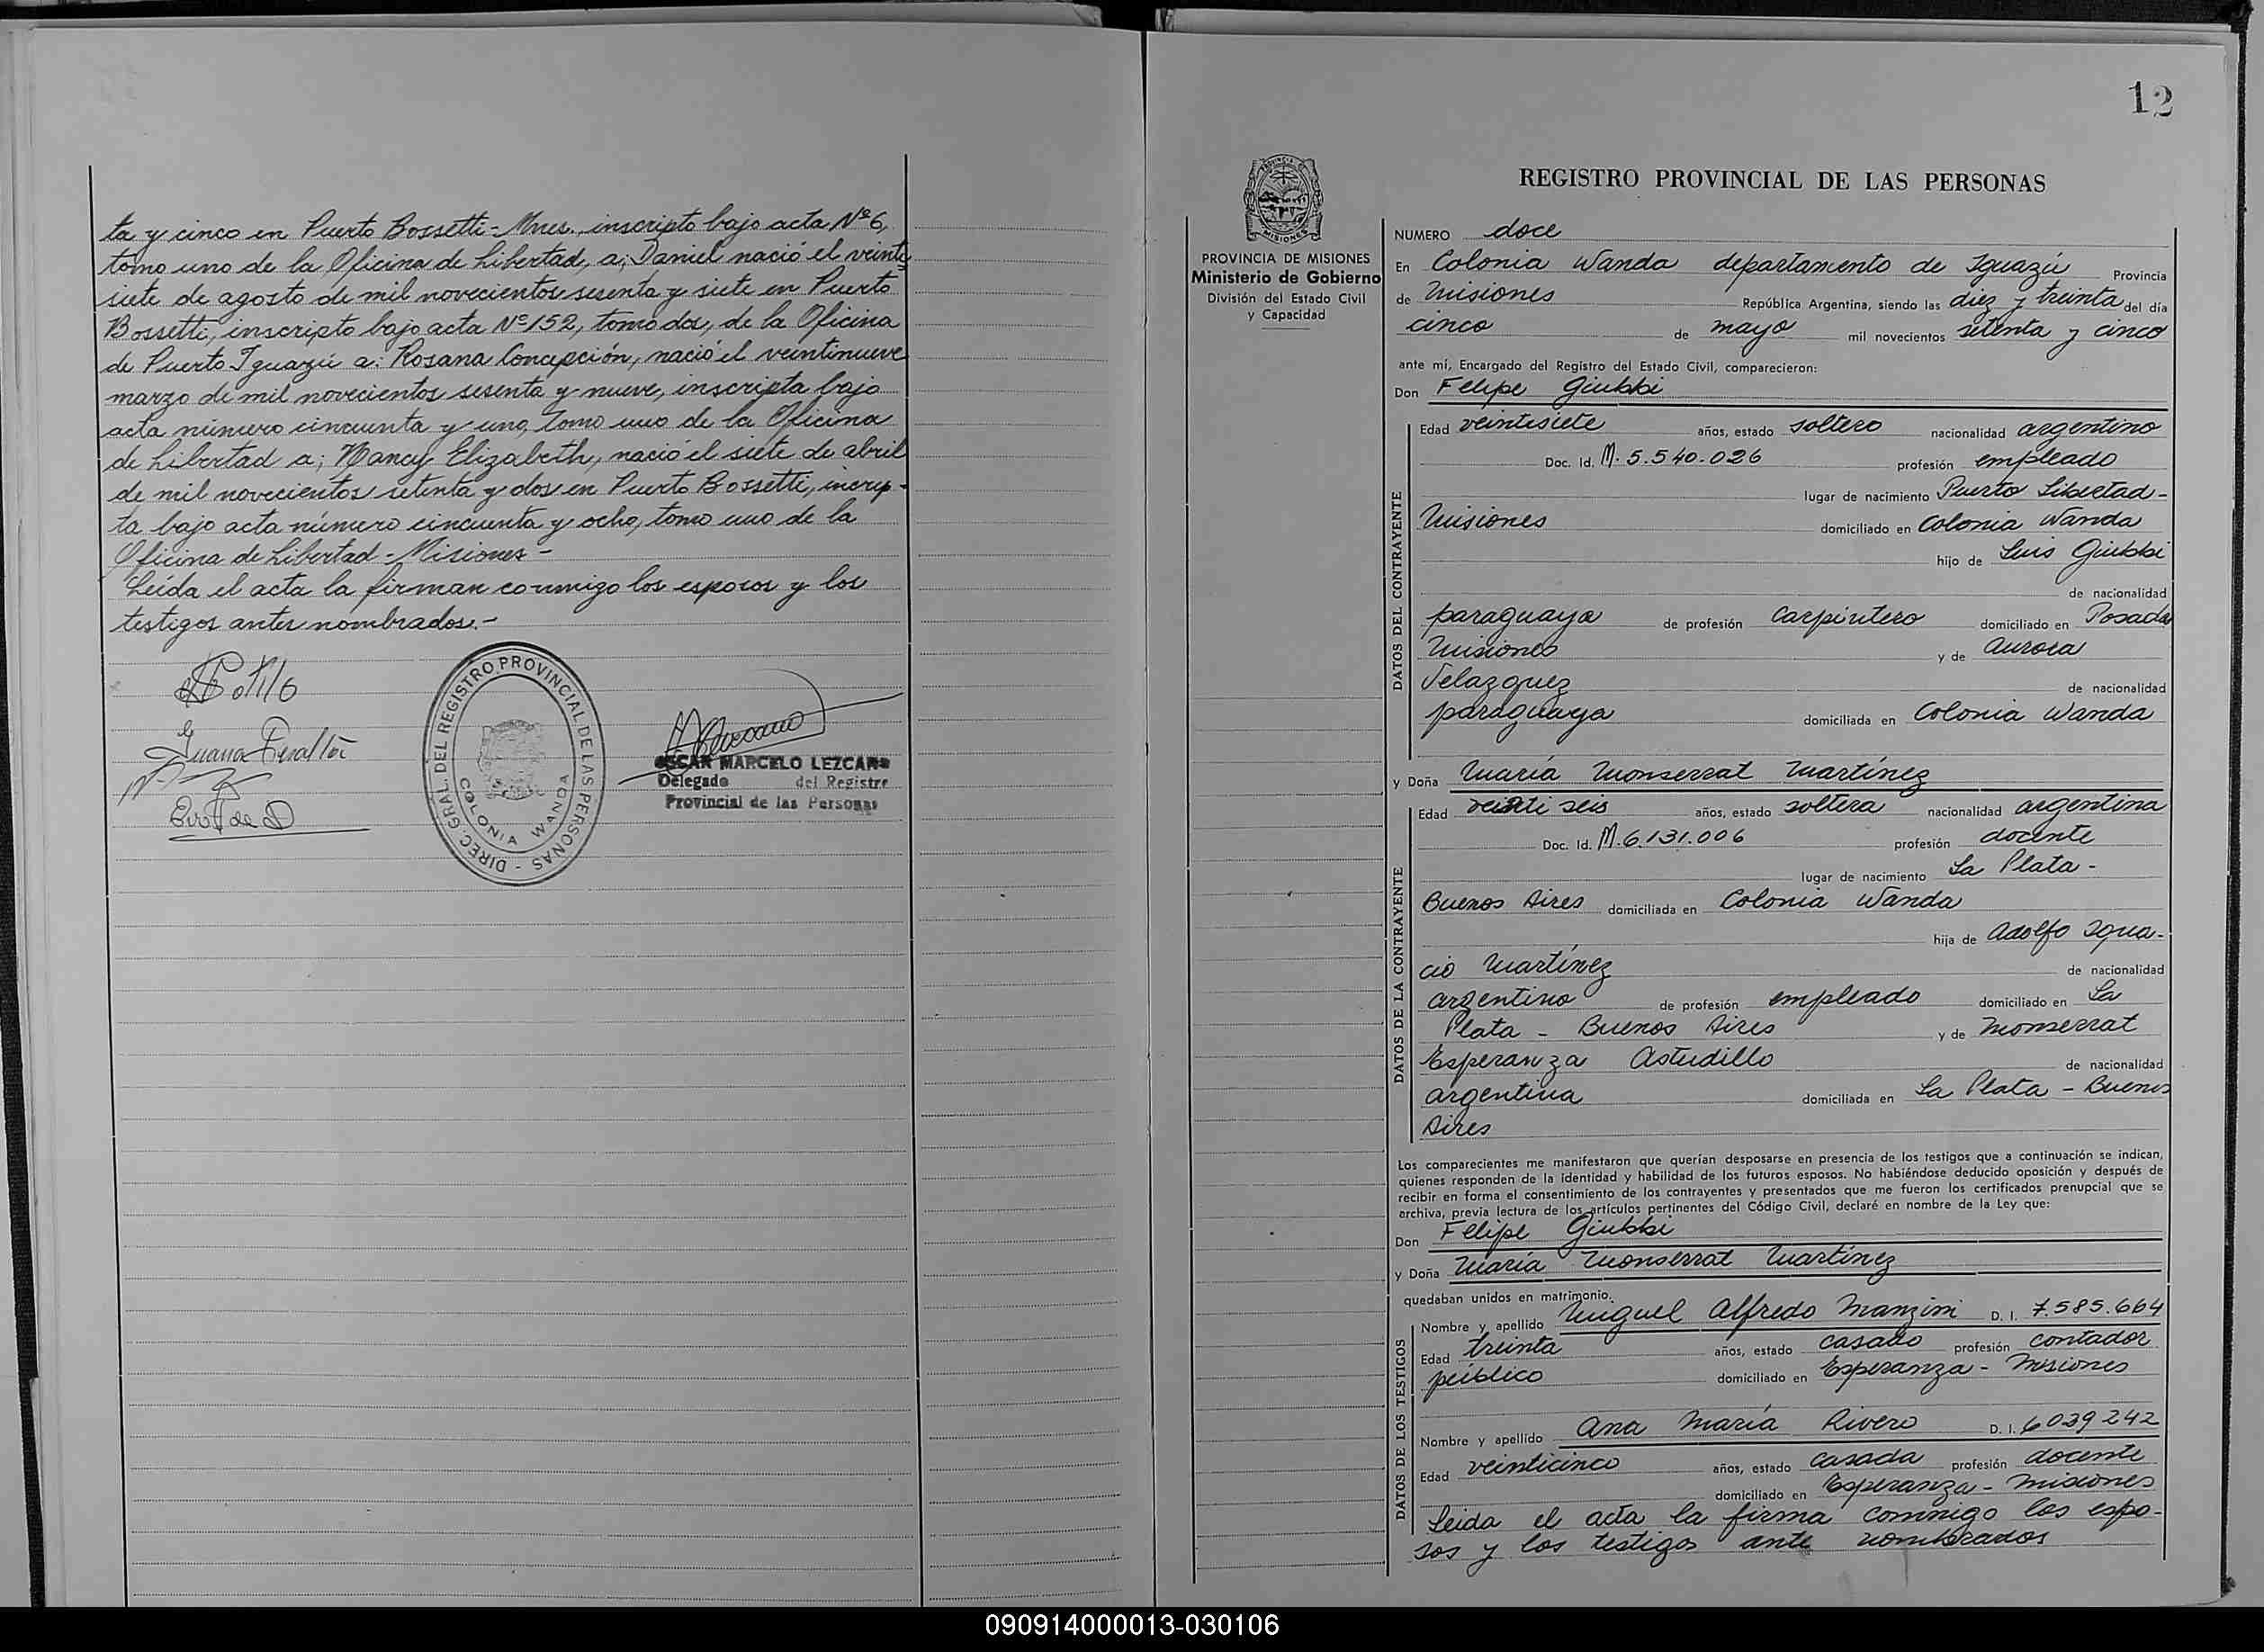 ta y cinco en Puerto Bossetti - Mnes. inscripto bajo acta Nº 6,
tomo uno de la Oficina de Libertad, a; Daniel nació el veinti
siete de agosto de mil novecientos sesenta y siete en Puerto
Bossetti, inscripto bajo acta Nº 152, tomo dos, de la Oficina
de Puerto Iguazú a: Rosana Concepción, nació el veintinueve
marzo de mil novecientos sesenta y nueve, inscripta bajo
acta número cincuenta y uno, tomo uno de la Oficina
de Libertad a; Nancy Elizabeth, nació el siete de abril
de mil novecientos setenta y dos en Puerto Bossetti, incrip-
ta bajo acta número cincuenta y ocho, tomo uno de la
Oficina de Libertad - Misiones -
Leída el acta la firman conmigo los esposos y los
testigos antes nombrados.-
Juana Peralta
DIREC. GRAL. DEL REGISTRO PROVINCIAL DE LAS PERSONAS -
COLONIA WANDA
OSCAR MARCELO LEZCANO
Delegado del Registro
Provincial de las Personas
12
PROVINCIA DE MISIONES
Ministerio de Gobierno
División del Estado Civil
y Capacidad
REGISTRO PROVINCIAL DE LAS PERSONAS
NUMERO doce
En Colonia Wanda departamento de Iguazú Provincia
de Misiones República Argentina, siendo las diez y treinta del día
cinco de mayo mil novecientos setenta y cinco
ante mí, Encargado del Registro del Estado Civil, comparecieron:
Don Felipe Giubbi
DATOS DEL CONTRAYENTE
Edad veintisiete años, estado soltero nacionalidad argentino
Doc. Id. M. 5.540.026 profesión empleado
lugar de nacimiento Puerto Libertad -
Misiones domiciliado en Colonia Wanda
hijo de Luis Giubbi
de nacionalidad
paraguaya de profesión Carpintero domiciliado en Posadas
Misiones y de Aurora
Velazquez de nacionalidad
paraguaya domiciliada en Colonia Wanda
y Doña María Monserrat Martínez
DATOS DE LA CONTRAYENTE
Edad veinti seis años, estado soltera nacionalidad argentina
Doc. Id. M. 6.131.006 profesión docente
lugar de nacimiento La Plata -
Buenos Aires domiciliada en Colonia Wanda
hija de Adolfo Igna-
cio Martínez de nacionalidad
argentino de profesión empleado domiciliado en La
Plata - Buenos Aires y de Monserrat
Esperanza Astudillo de nacionalidad
argentina domiciliada en La Plata - Buenos
Aires
Los comparecientes me manifestaron que querían desposarse en presencia de los testigos que a continuación se indican,
quienes responden de la identidad y habilidad de los futuros esposos. No habiéndose deducido oposición y después de
recibir en forma el consentimiento de los contrayentes y presentados que me fueron los certificados prenupcial que se
archiva, previa lectura de los artículos pertinentes del Código Civil, declaré en nombre de la Ley que:
Don Felipe Giubbi
y Doña María Monserrat Martínez
quedaban unidos en matrimonio.
DATOS DE LOS TESTIGOS
Nombre y apellido Miguel Alfredo Manzini D. I. 7.585.664
Edad treinta años, estado casado profesión contador
público domiciliado en Esperanza - Misiones
Nombre y apellido Ana María Rivero D. I. 6039242
Edad veinticinco años, estado casada profesión docente
domiciliado en Esperanza - Misiones
Leida el acta la firma conmigo los espo-
sos y los testigos ante nombrados
090914000013-030106